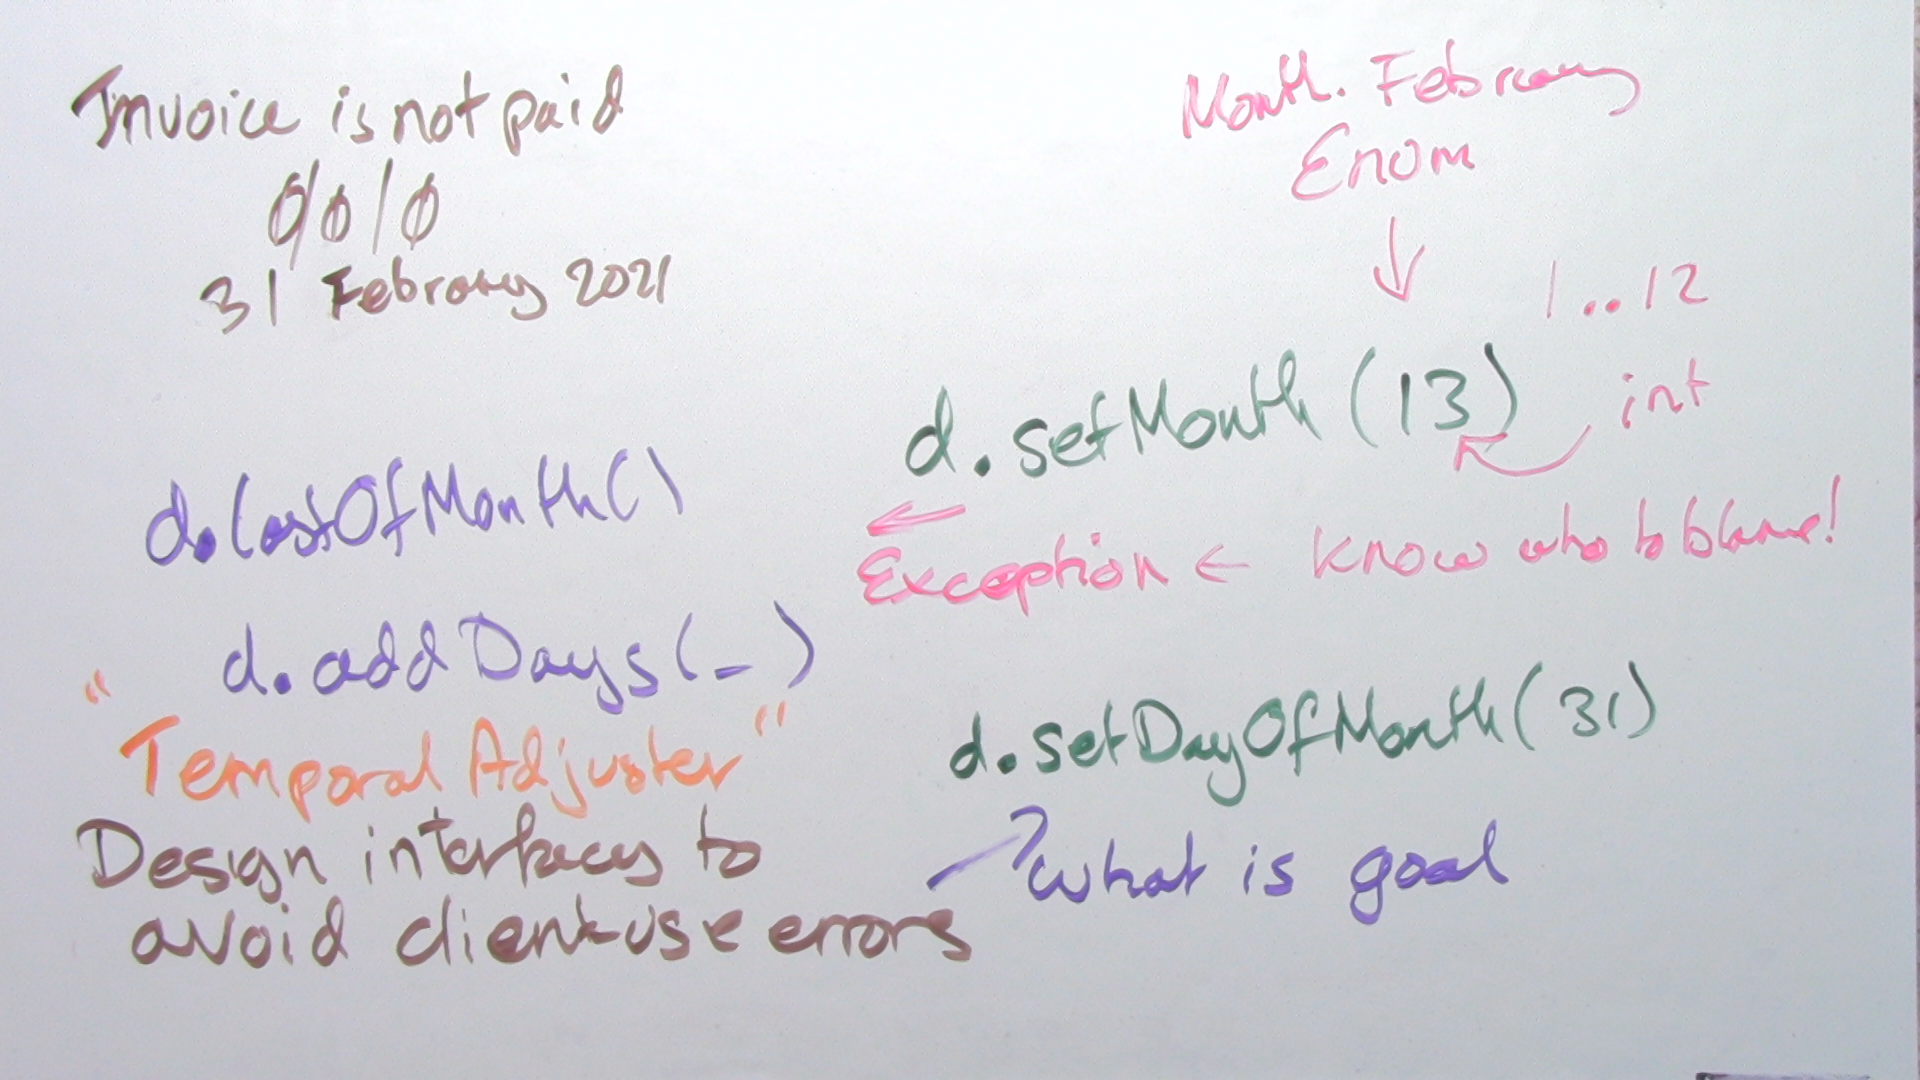 Invoice is not paid
0/0/0
31 February 2021
d.lastOfMonth()
d.addDays(_)
"Temporal Adjuster"
Design interfaces to
avoid client-use errors
Month. February
Enum
1..12
int
d.setMonth(13)
Exception ← know who to blame!
d.setDayOfMonth(31)
what is goal